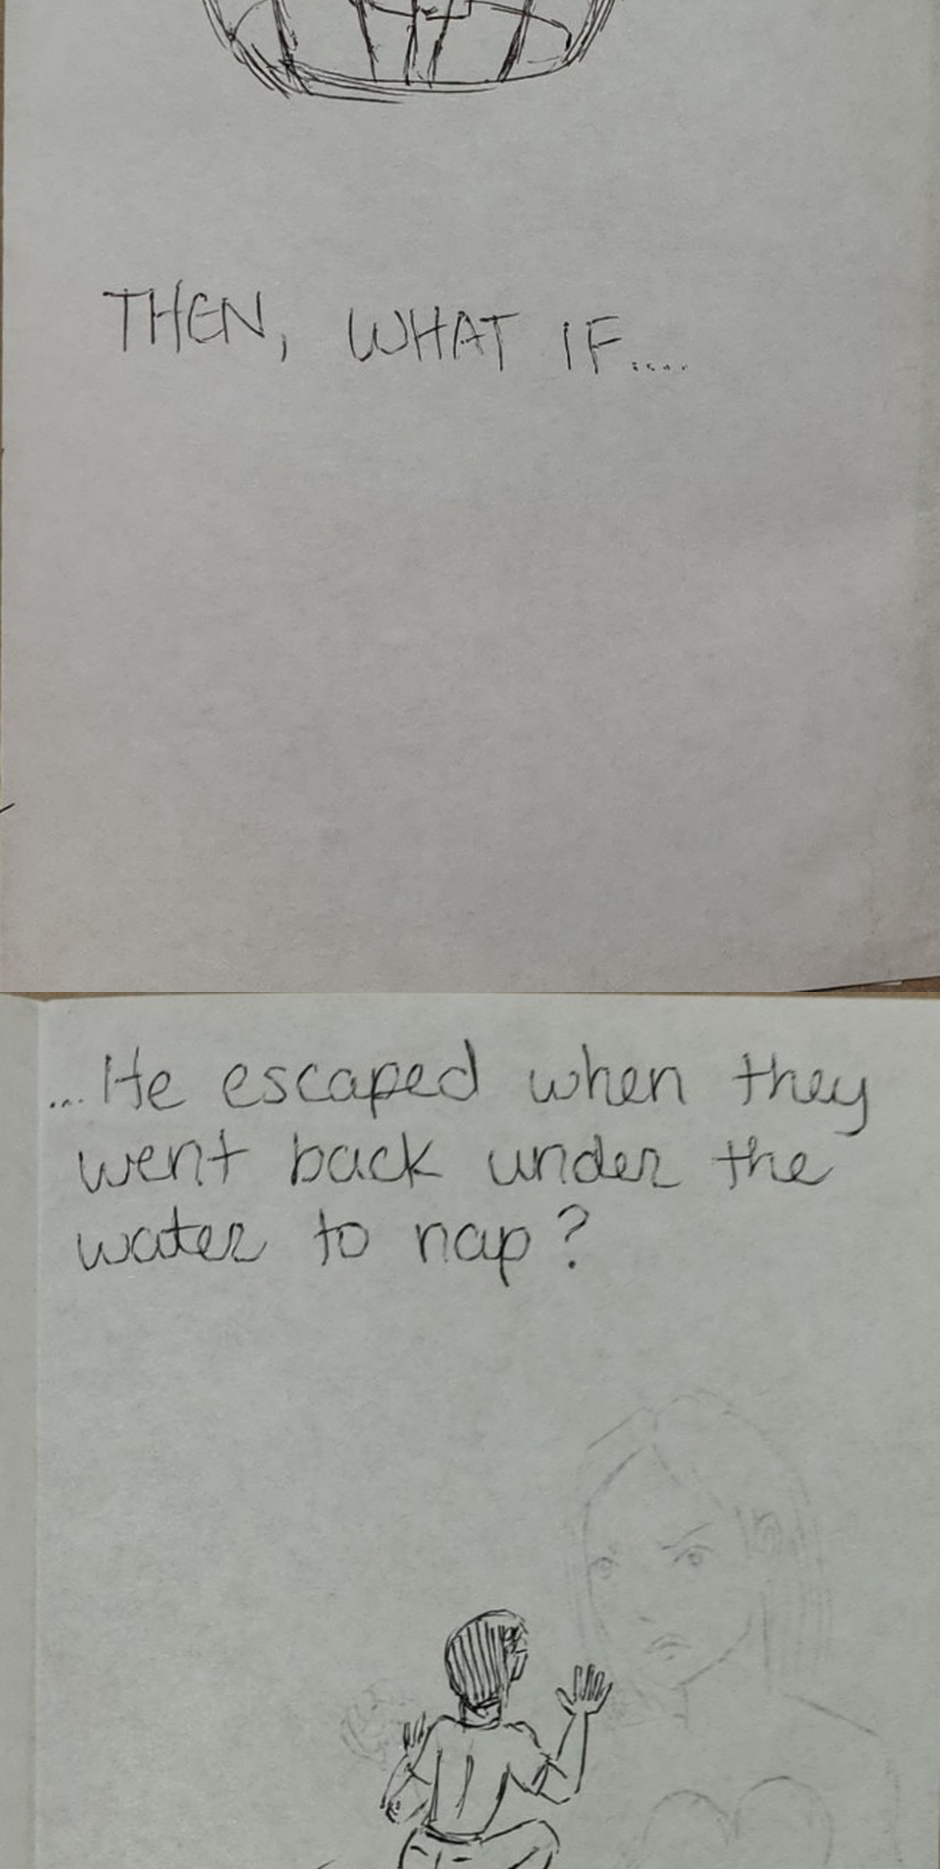 THEN, WHAT IF....
...He escaped when they
went back under the
water to nap?